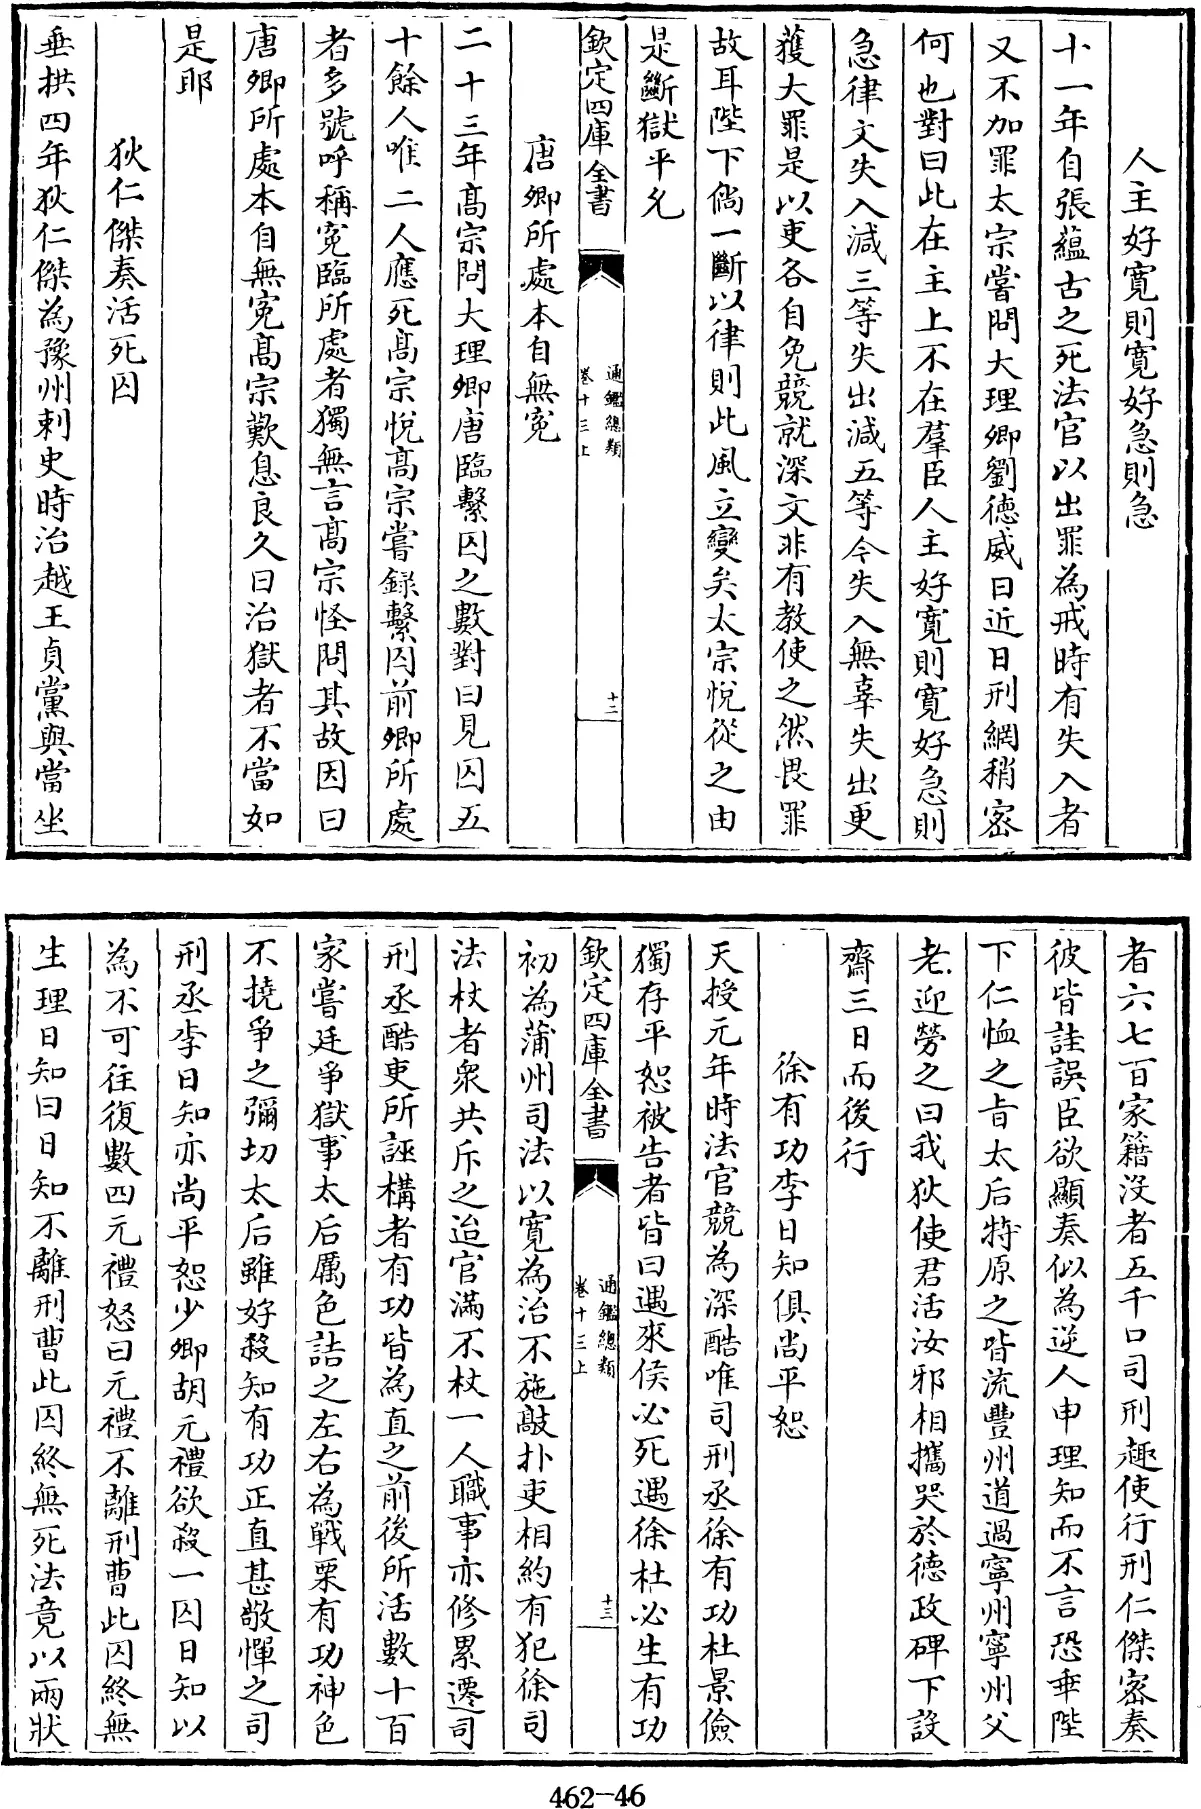 人主好寛則寛好急則急
十一年自張藴古之死法官以出罪為戒時有失入者
又不加罪太宗嘗問大理卿劉徳威曰近日刑網稍宻
何也對曰此在主上不在羣臣人主好寛則寛好急則
急律文失入減三等失出減五等今失入無辜失出更
獲大罪是以吏各自免競就深文非有教使之然畏罪
故耳陛下倘一斷以律則此風立變矣太宗悅從之由
是斷獄平允
欽定四庫全書
通鑑總類
卷十三上
十二
唐卿所處本自無寃
二十三年髙宗問大理卿唐臨繫囚之數對曰見囚五
十餘人唯二人應死髙宗悅髙宗嘗録繫囚前卿所處
者多號呼稱寃臨所處者獨無言髙宗怪問其故因曰
唐卿所處本自無寃髙宗歎息良久曰治獄者不當如
是耶
狄仁傑奏活死囚
垂拱四年狄仁傑為豫州刺史時治越王貞黨與當坐
者六七百家籍沒者五千口司刑趣使行刑仁傑宻奏
彼皆詿誤臣欲顯奏似為逆人申理知而不言恐乖陛
下仁恤之旨太后特原之皆流豐州道過寧州寧州父
老迎勞之曰我狄使君活汝邪相攜哭於徳政碑下設
齋三日而後行
徐有功李日知俱尚平恕
天授元年時法官競為深酷唯司刑丞徐有功杜景儉
獨存平恕被告者皆曰遇來侯必死遇徐杜必生有功
欽定四庫全書
通鑑總類
卷十三上
十三
初為蒲州司法以寛為治不施敲扑吏相約有犯徐司
法杖者衆共斥之迨官滿不杖一人職事亦修累遷司
刑丞酷吏所誣構者有功皆為直之前後所活數十百
家嘗廷爭獄事太后厲色詰之左右為戰栗有功神色
不撓爭之彌切太后雖好殺知有功正直甚敬憚之司
刑丞李日知亦尚平恕少卿胡元禮欲殺一囚日知以
為不可往復數四元禮怒曰元禮不離刑曹此囚終無
生理日知曰日知不離刑曹此囚終無死法竟以兩狀
462-46